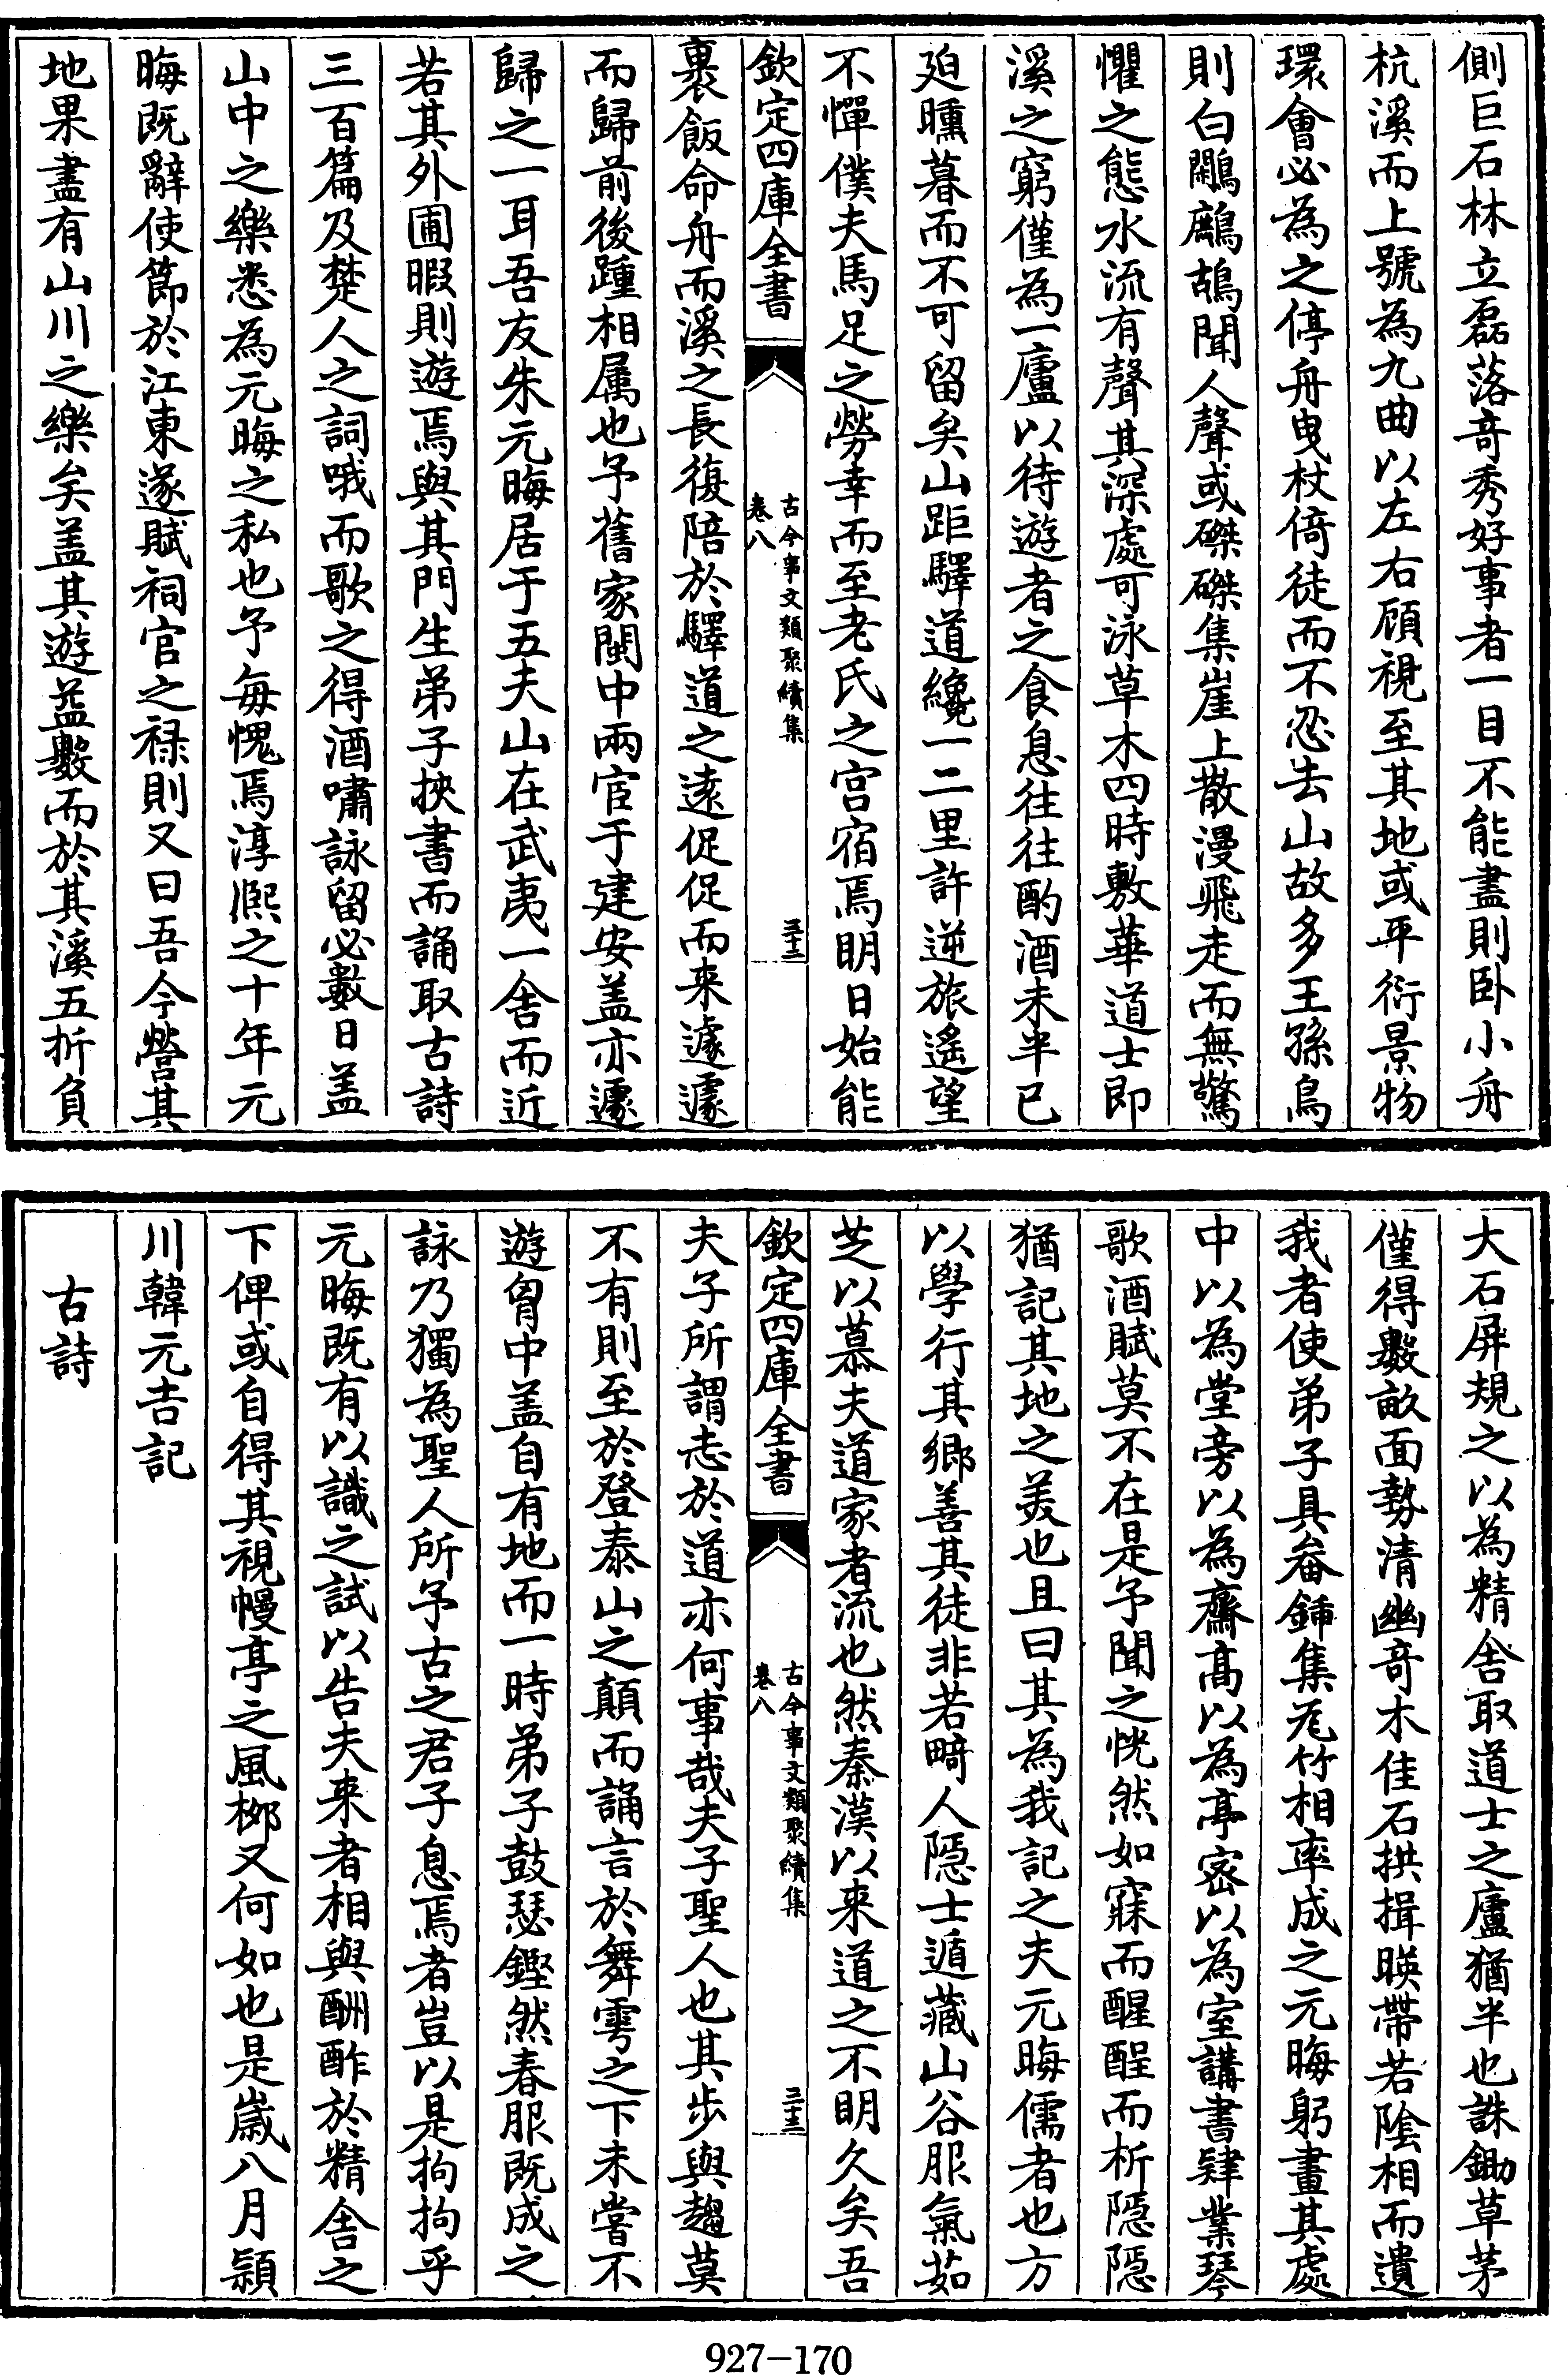 側巨石林立磊落竒秀好事者一目不能盡則卧小舟
杭溪而上號為九曲以左右顧視至其地或平衍景物
環會必為之停舟曳杖倚徙而不忍去山故多王孫鳥
則白鷴鷓鴣聞人聲或磔磔集崖上散漫飛走而無驚
懼之態水流有聲其深處可泳草木四時敷華道士即
溪之窮僅為一廬以待遊者之食息往往酌酒未半已
廹曛暮而不可留矣山距驛道纔一二里許逆旅遙望
不憚僕夫馬足之勞幸而至老氏之宫宿焉明日始能
欽定四庫全書
古今事文類聚續集
卷八
三十二
裹飯命舟而溪之長復陪於驛道之逺促促而来遽遽
而歸前後踵相属也予舊家閩中兩宦于建安盖亦遽
歸之一耳吾友朱元晦居于五夫山在武夷一舍而近
若其外圃暇則遊焉與其門生弟子挾書而誦取古詩
三百篇及楚人之詞哦而歌之得酒嘯詠留必數日盖
山中之樂悉為元晦之私也予每愧焉淳熈之十年元
晦既辭使節於江東遂賦祠官之禄則又曰吾今營其
地果盡有山川之樂矣盖其遊益數而於其溪五折負
大石屏規之以為精舎取道士之廬猶半也誅鋤草茅
僅得數畝面勢清幽竒木佳石拱揖暎帶若隂相而遺
我者使弟子具畚鍤集瓦竹相率成之元晦躬畫其處
中以為堂旁以為齋髙以為亭宻以為室講書肄業琴
歌酒賦莫不在是予聞之恍然如寐而醒酲而析隠隠
猶記其地之美也且曰其為我記之夫元晦儒者也方
以學行其鄉善其徒非若畸人隠士遁藏山谷服氣茹
芝以慕夫道家者流也然秦漢以来道之不明久矣吾
欽定四庫全書
古今事文類聚續集
卷八
三十三
夫子所謂志於道亦何事哉夫子聖人也其步與趨莫
不有則至於登泰山之顛而誦言於舞雩之下未嘗不
遊胷中盖自有地而一時弟子鼓瑟鏗然春服既成之
詠乃獨為聖人所予古之君子息焉者豈以是拘拘乎
元晦既有以識之試以告夫来者相與酬酢於精舎之
下俾或自得其視幔亭之風栁又何如也是嵗八月頴
川韓元吉記
古詩
927-170